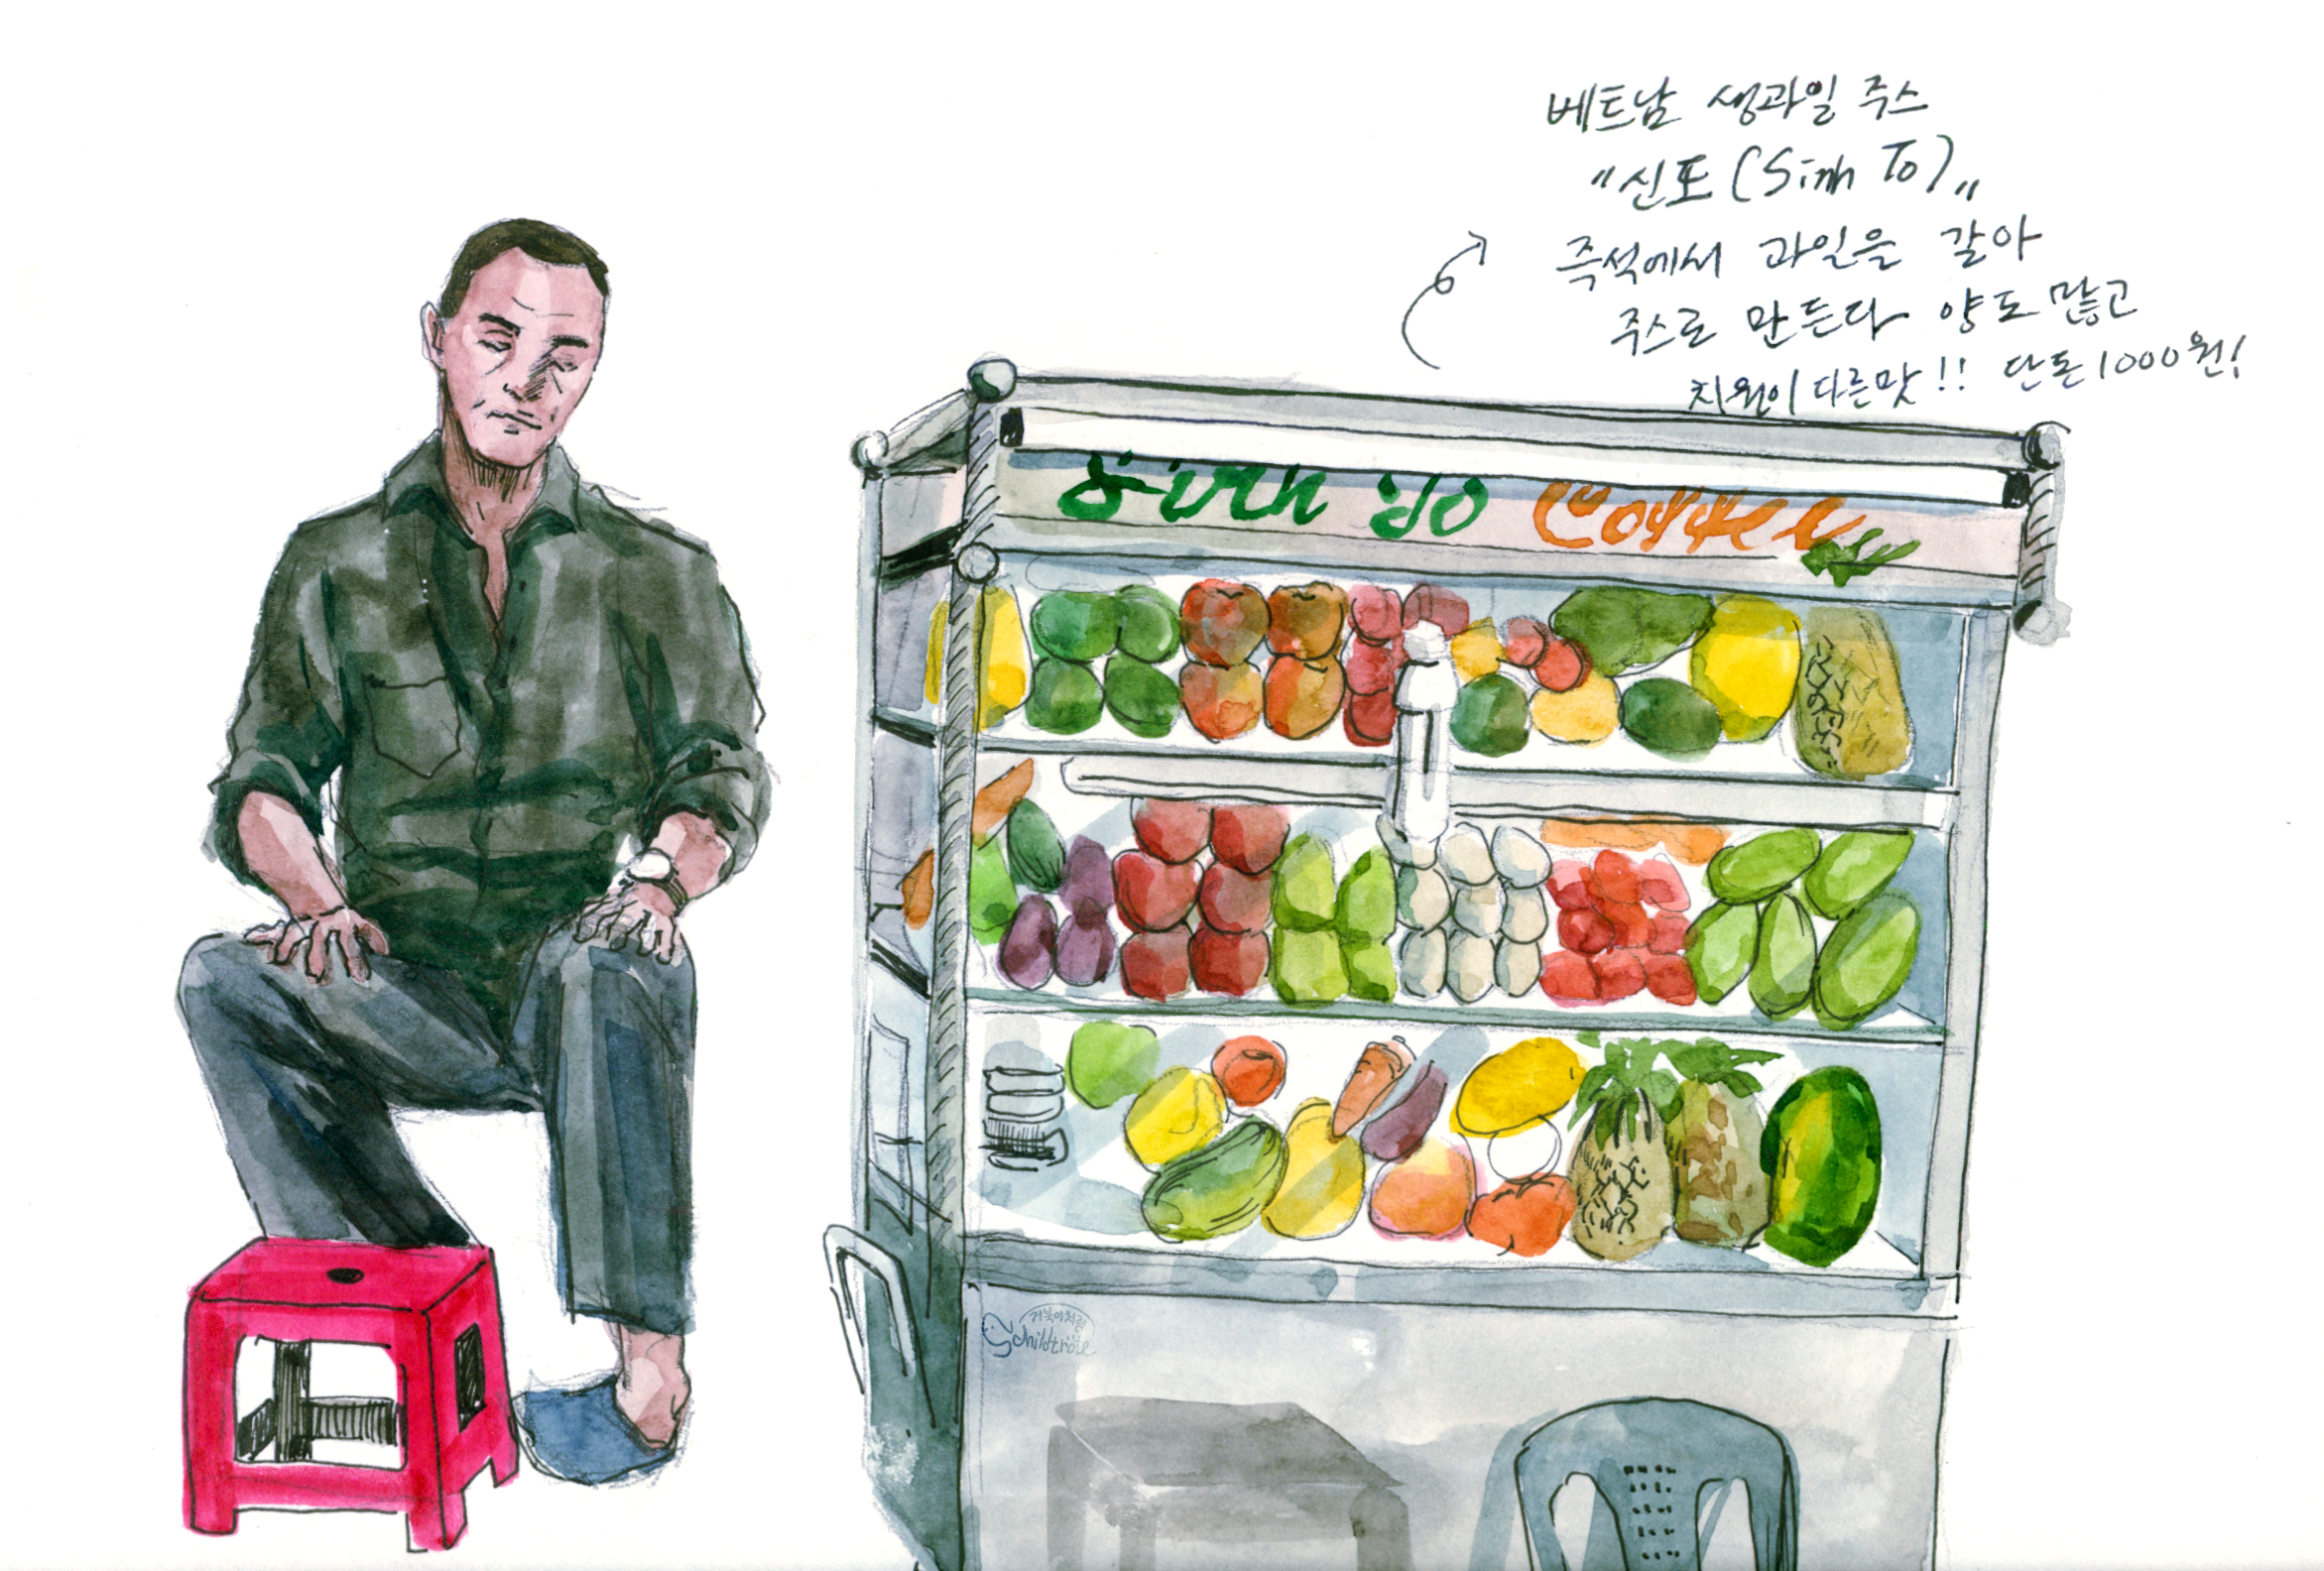 베트남 생과일 주스
"신또 (Sinh To)"
즉석에서 과일을 갈아
주스로 만든다 양도 많고
차원이 다른맛!! 단돈 1000원!
Sinh To Coffee
거북이처럼
Schildkröte